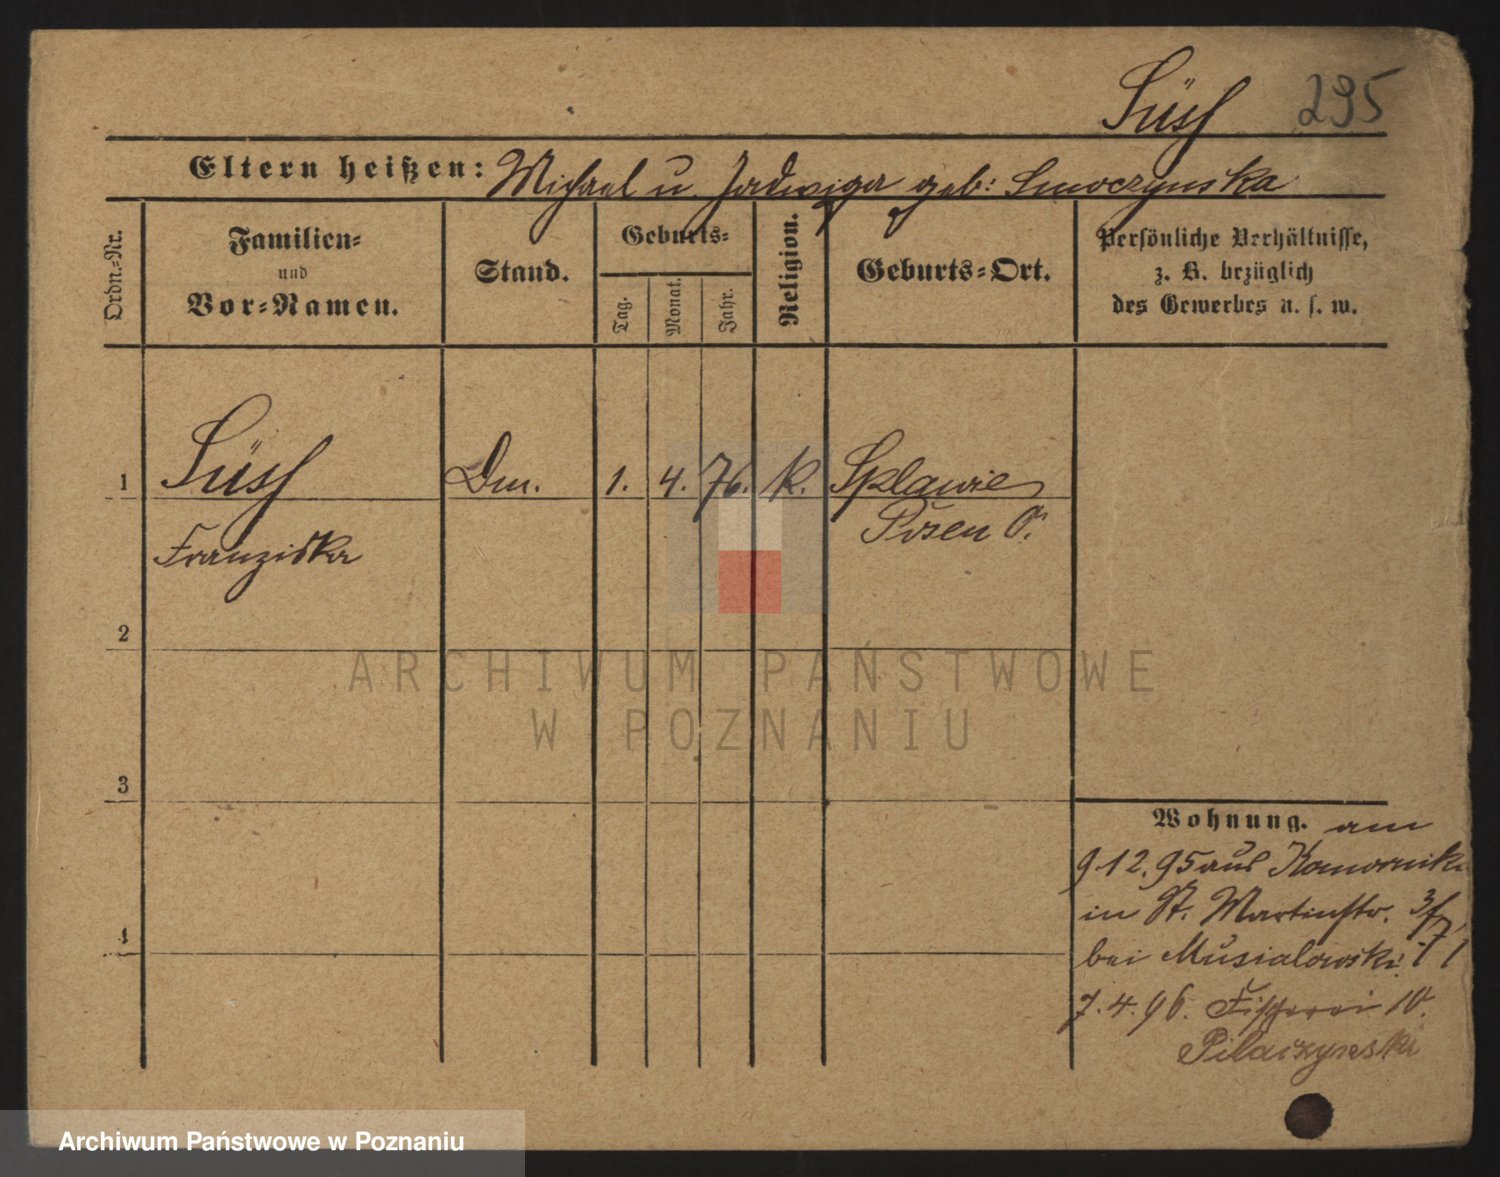 Süss 295
Eltern heißen: Michael u. Jadwiga geb: Smoczynska
Ordn.-Nr.
Familien-
und
Vor-Namen.
Stand.
Geburts-
Tag.
Monat.
Jahr.
Religion.
Geburts-Ort.
Persönliche Verhältnisse,
z. B. bezüglich
des Gewerbes u. s. w.
1 Süss Dm. 1. 4. 76. k. Splawie
Franziska Posen O.
2
3
4
Wohnung. am
9.12.95 aus Komornik
in St. Martinstr.
bei Musialowski
7.4.96. Fischerei 10.
Pilaczynski
ARCHIWUM PAŃSTWOWE
W POZNANIU
Archiwum Państwowe w Poznaniu